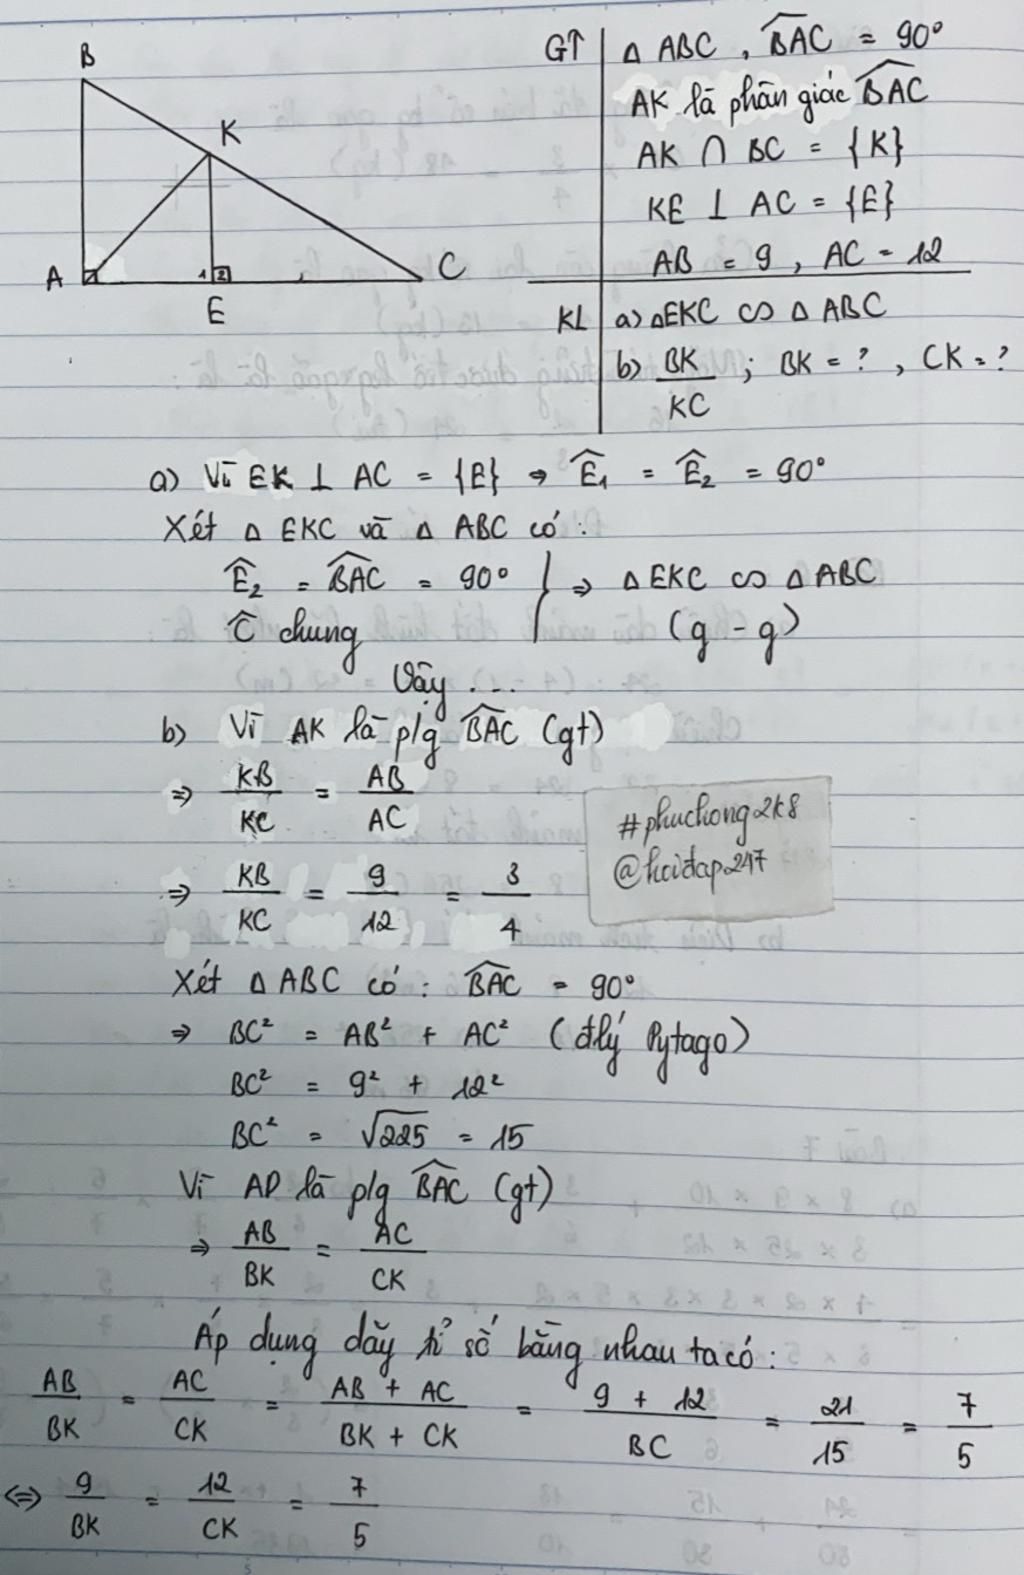 B
K
A
1 2
E
C
GT
Δ ABC , BAC = 90°
AK là phân giác BAC
AK ∩ BC = {K}
KE ⊥ AC = {E}
AB = 9 , AC = 12
KL
a) ΔEKC ∽ Δ ABC
b) BK/KC ; BK = ? , CK = ?
a) Vì EK ⊥ AC = {E} ⇒ Ê₁ = Ê₂ = 90°
Xét Δ EKC và Δ ABC có :
Ê₂ = BAC = 90° } ⇒ Δ EKC ∽ Δ ABC
Ĉ chung (g - g)
Vậy ...
b) Vì AK là p/g BAC (gt)
⇒ KB/KC = AB/AC
⇒ KB/KC = 9/12 = 3/4
#phuchong2k8
@hoidap247
Xét Δ ABC có : BAC = 90°
⇒ BC² = AB² + AC² (đlý Pytago)
BC² = 9² + 12²
BC² = √225 = 15
Vì AD là p/g BAC (gt)
⇒ AB/BK = AC/CK
Áp dụng dãy tỉ số bằng nhau ta có :
AB/BK = AC/CK = AB + AC/BK + CK = 9 + 12/BC = 21/15 = 7/5
⇔ 9/BK = 12/CK = 7/5